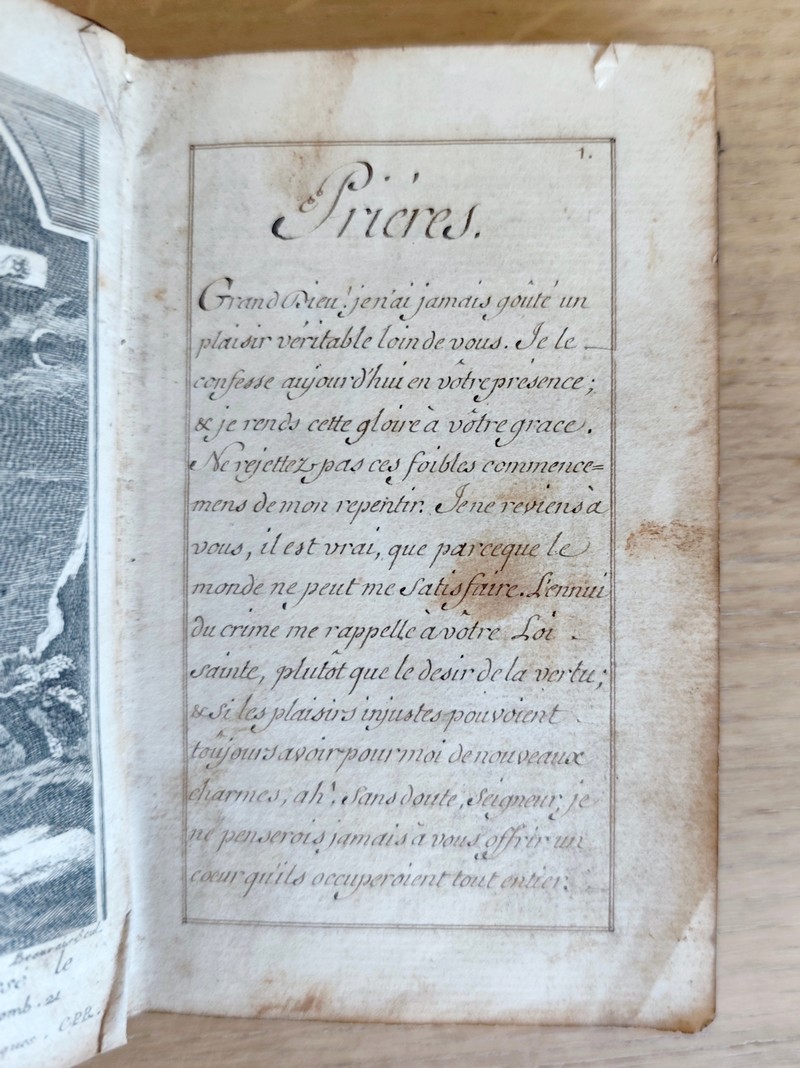 1.
Priéres.
Grand Dieu! je n'ai jamais goûté un
plaisir véritable loin de vous. Je le
confesse aujourd'hui en vôtre présence;
& je rends cette gloire à vôtre grace.
Ne rejettez pas ces foibles commence=
mens de mon repentir. Je ne reviens à
vous, il est vrai, que parceque le
monde ne peut me satisfaire. L'ennui
du crime me rappelle à vôtre Loi
sainte, plutôt que le desir de la vertu;
& si les plaisirs injustes pouvoient
toûjours avoir pour moi de nouveaux
charmes, ah! sans doute, Seigneur, je
ne penserois jamais à vous offrir un
cœur qu'ils occuperoient tout entier.
le
omb. 21
ques. C.P.R.